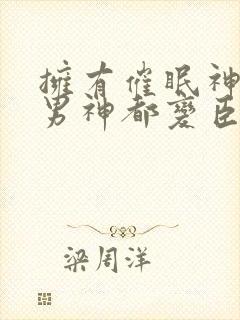 擁有催眠神
男神都變臣
梁周洋